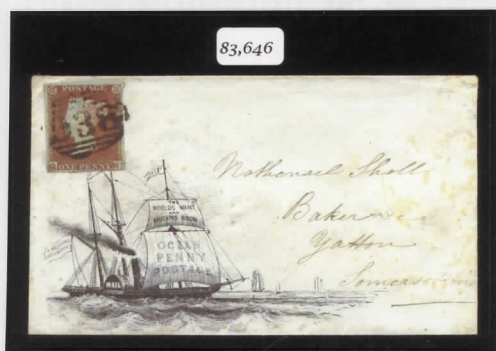 83,646
POSTAGE
38
ONE PENNY
THE
WORLDS WANT
AND
BRITAINS BOON
OCEAN
PENNY
POSTAGE
Nathanael Sholl
Baker
Yatton
Somersetshire